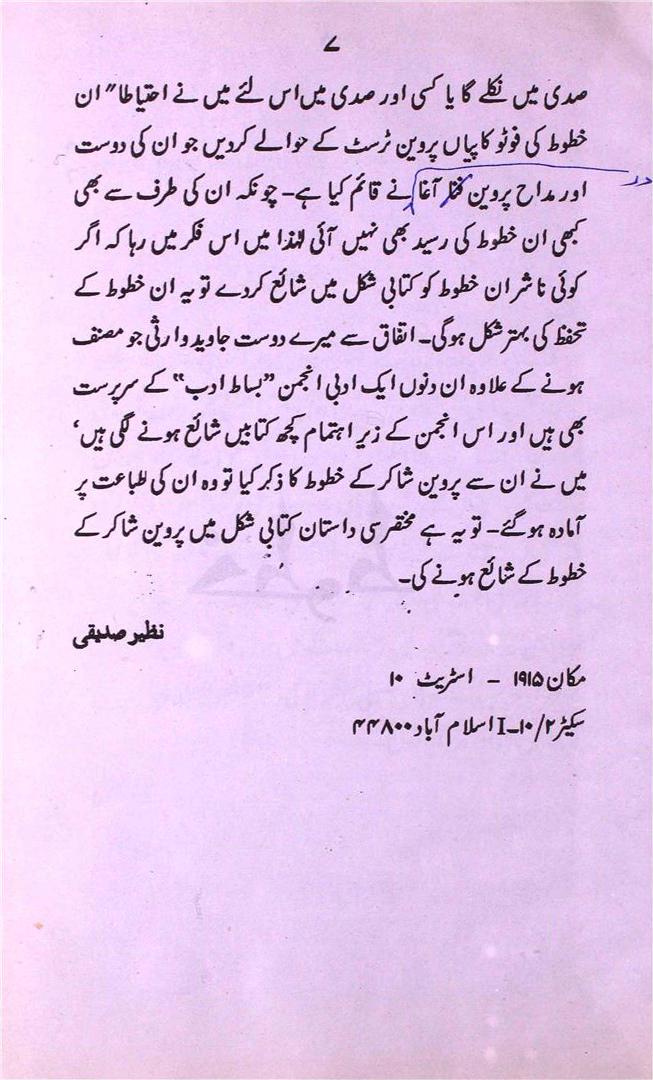 ۷
صدی میں نکلے گا یا کسی اور صدی میں اس لئے میں نے احتیاطا" ان
خطوط کی فوٹو کاپیاں پروین ٹرسٹ کے حوالے کردیں جو ان کی دوست
اور مداح پروین آغا نے قائم کیا ہے۔ چونکہ ان کی طرف سے بھی
کبھی ان خطوط کی رسید بھی نہیں آئی لہٰذا میں اس فکر میں رہا کہ اگر
کوئی ناشر ان خطوط کو کتابی شکل میں شائع کردے تو یہ ان خطوط کے
تحفظ کی بہتر شکل ہوگی۔ اتفاق سے میرے دوست جاوید وارثی جو مصنف
ہونے کے علاوہ ان دنوں ایک ادبی انجمن "بساط ادب" کے سرپرست
بھی ہیں اور اس انجمن کے زیر اہتمام کچھ کتابیں شائع ہونے لگی ہیں‘
میں نے ان سے پروین شاکر کے خطوط کا ذکر کیا تو وہ ان کی طباعت پر
آمادہ ہوگئے۔ تو یہ ہے مختصر سی داستان کتابی شکل میں پروین شاکر کے
خطوط کے شائع ہونے کی۔
نظیر صدیقی
مکان ۱۹۱۵ - اسٹریٹ ۱۰
سیکٹر I-۱۰/۲ اسلام آباد ۴۴۸۰۰